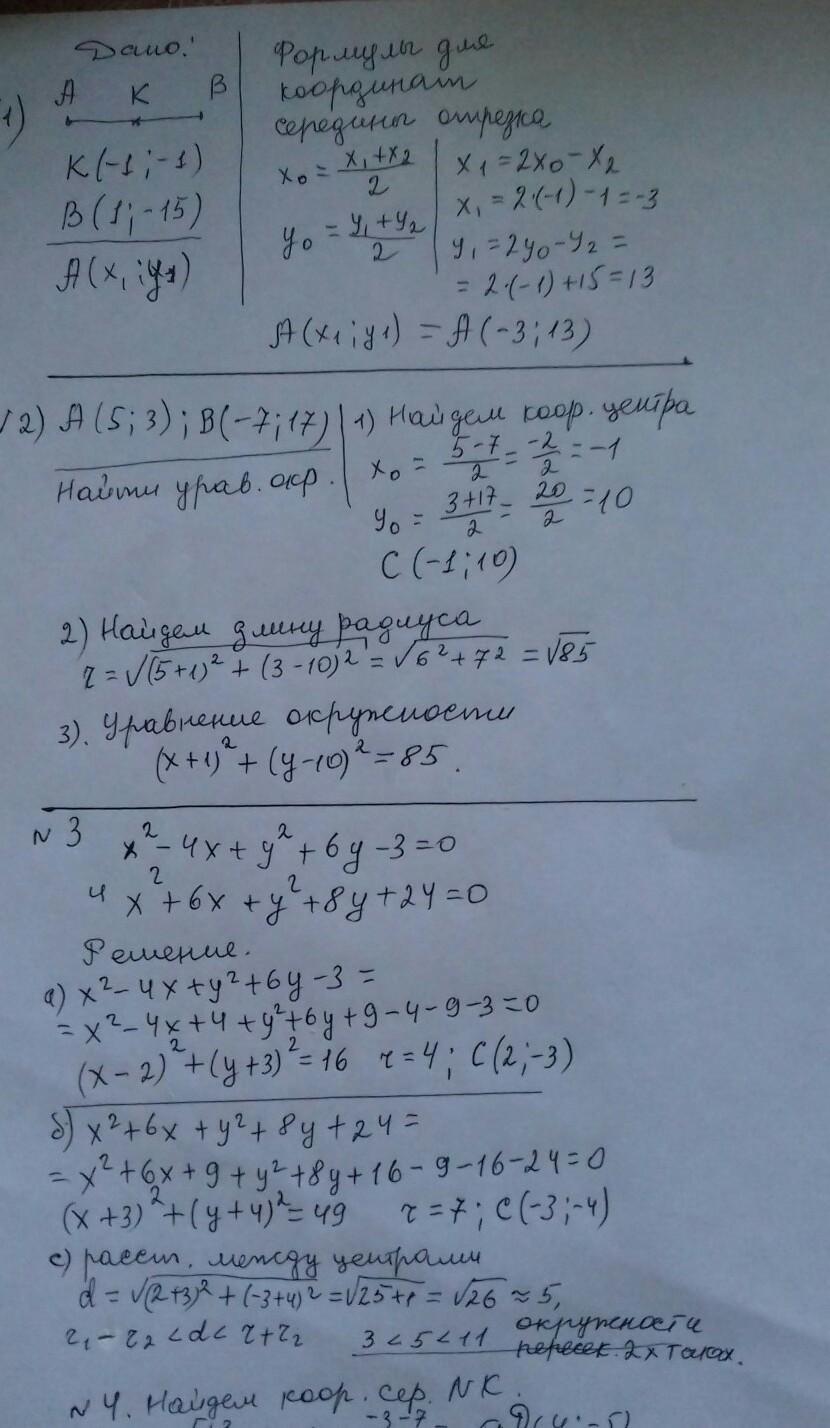 Дано:
Формулы для
координат
середины отрезка
1)
A K B
K(-1;-1)
B(1;-15)
A(x₁;y₁)
x₀ = (x₁+x₂)/2
y₀ = (y₁+y₂)/2
x₁ = 2x₀ - x₂
x₁ = 2·(-1) - 1 = -3
y₁ = 2y₀ - y₂ =
= 2·(-1)+15 = 13
A(x₁;y₁) = A(-3;13)
2) A(5;3); B(-7;17)
Найти урав. окр.
1) Найдем коор. центра
x₀ = (5-7)/2 = -2/2 = -1
y₀ = (3+17)/2 = 20/2 = 10
C(-1;10)
2) Найдем длину радиуса
r = √((5+1)² + (3-10)²) = √(6²+7²) = √85
3). Уравнение окружности
(x+1)² + (y-10)² = 85.
N 3 x² - 4x + y² + 6y - 3 = 0
4 x² + 6x + y² + 8y + 24 = 0
Решение.
а) x² - 4x + y² + 6y - 3 =
= x² - 4x + 4 + y² + 6y + 9 - 4 - 9 - 3 = 0
(x-2)² + (y+3)² = 16 r = 4; C(2;-3)
б) x² + 6x + y² + 8y + 24 =
= x² + 6x + 9 + y² + 8y + 16 - 9 - 16 - 24 = 0
(x+3)² + (y+4)² = 49 r = 7; C(-3;-4)
с) расст. между центрами
d = √((2+3)² + (-3+4)²) = √(25+1) = √26 ≈ 5,
r₁ - r₂ < d < r + r₂ 3 < 5 < 11 окружности
пересек. 2х точках.
N 4. Найдем коор. сер. NK.
-3-7